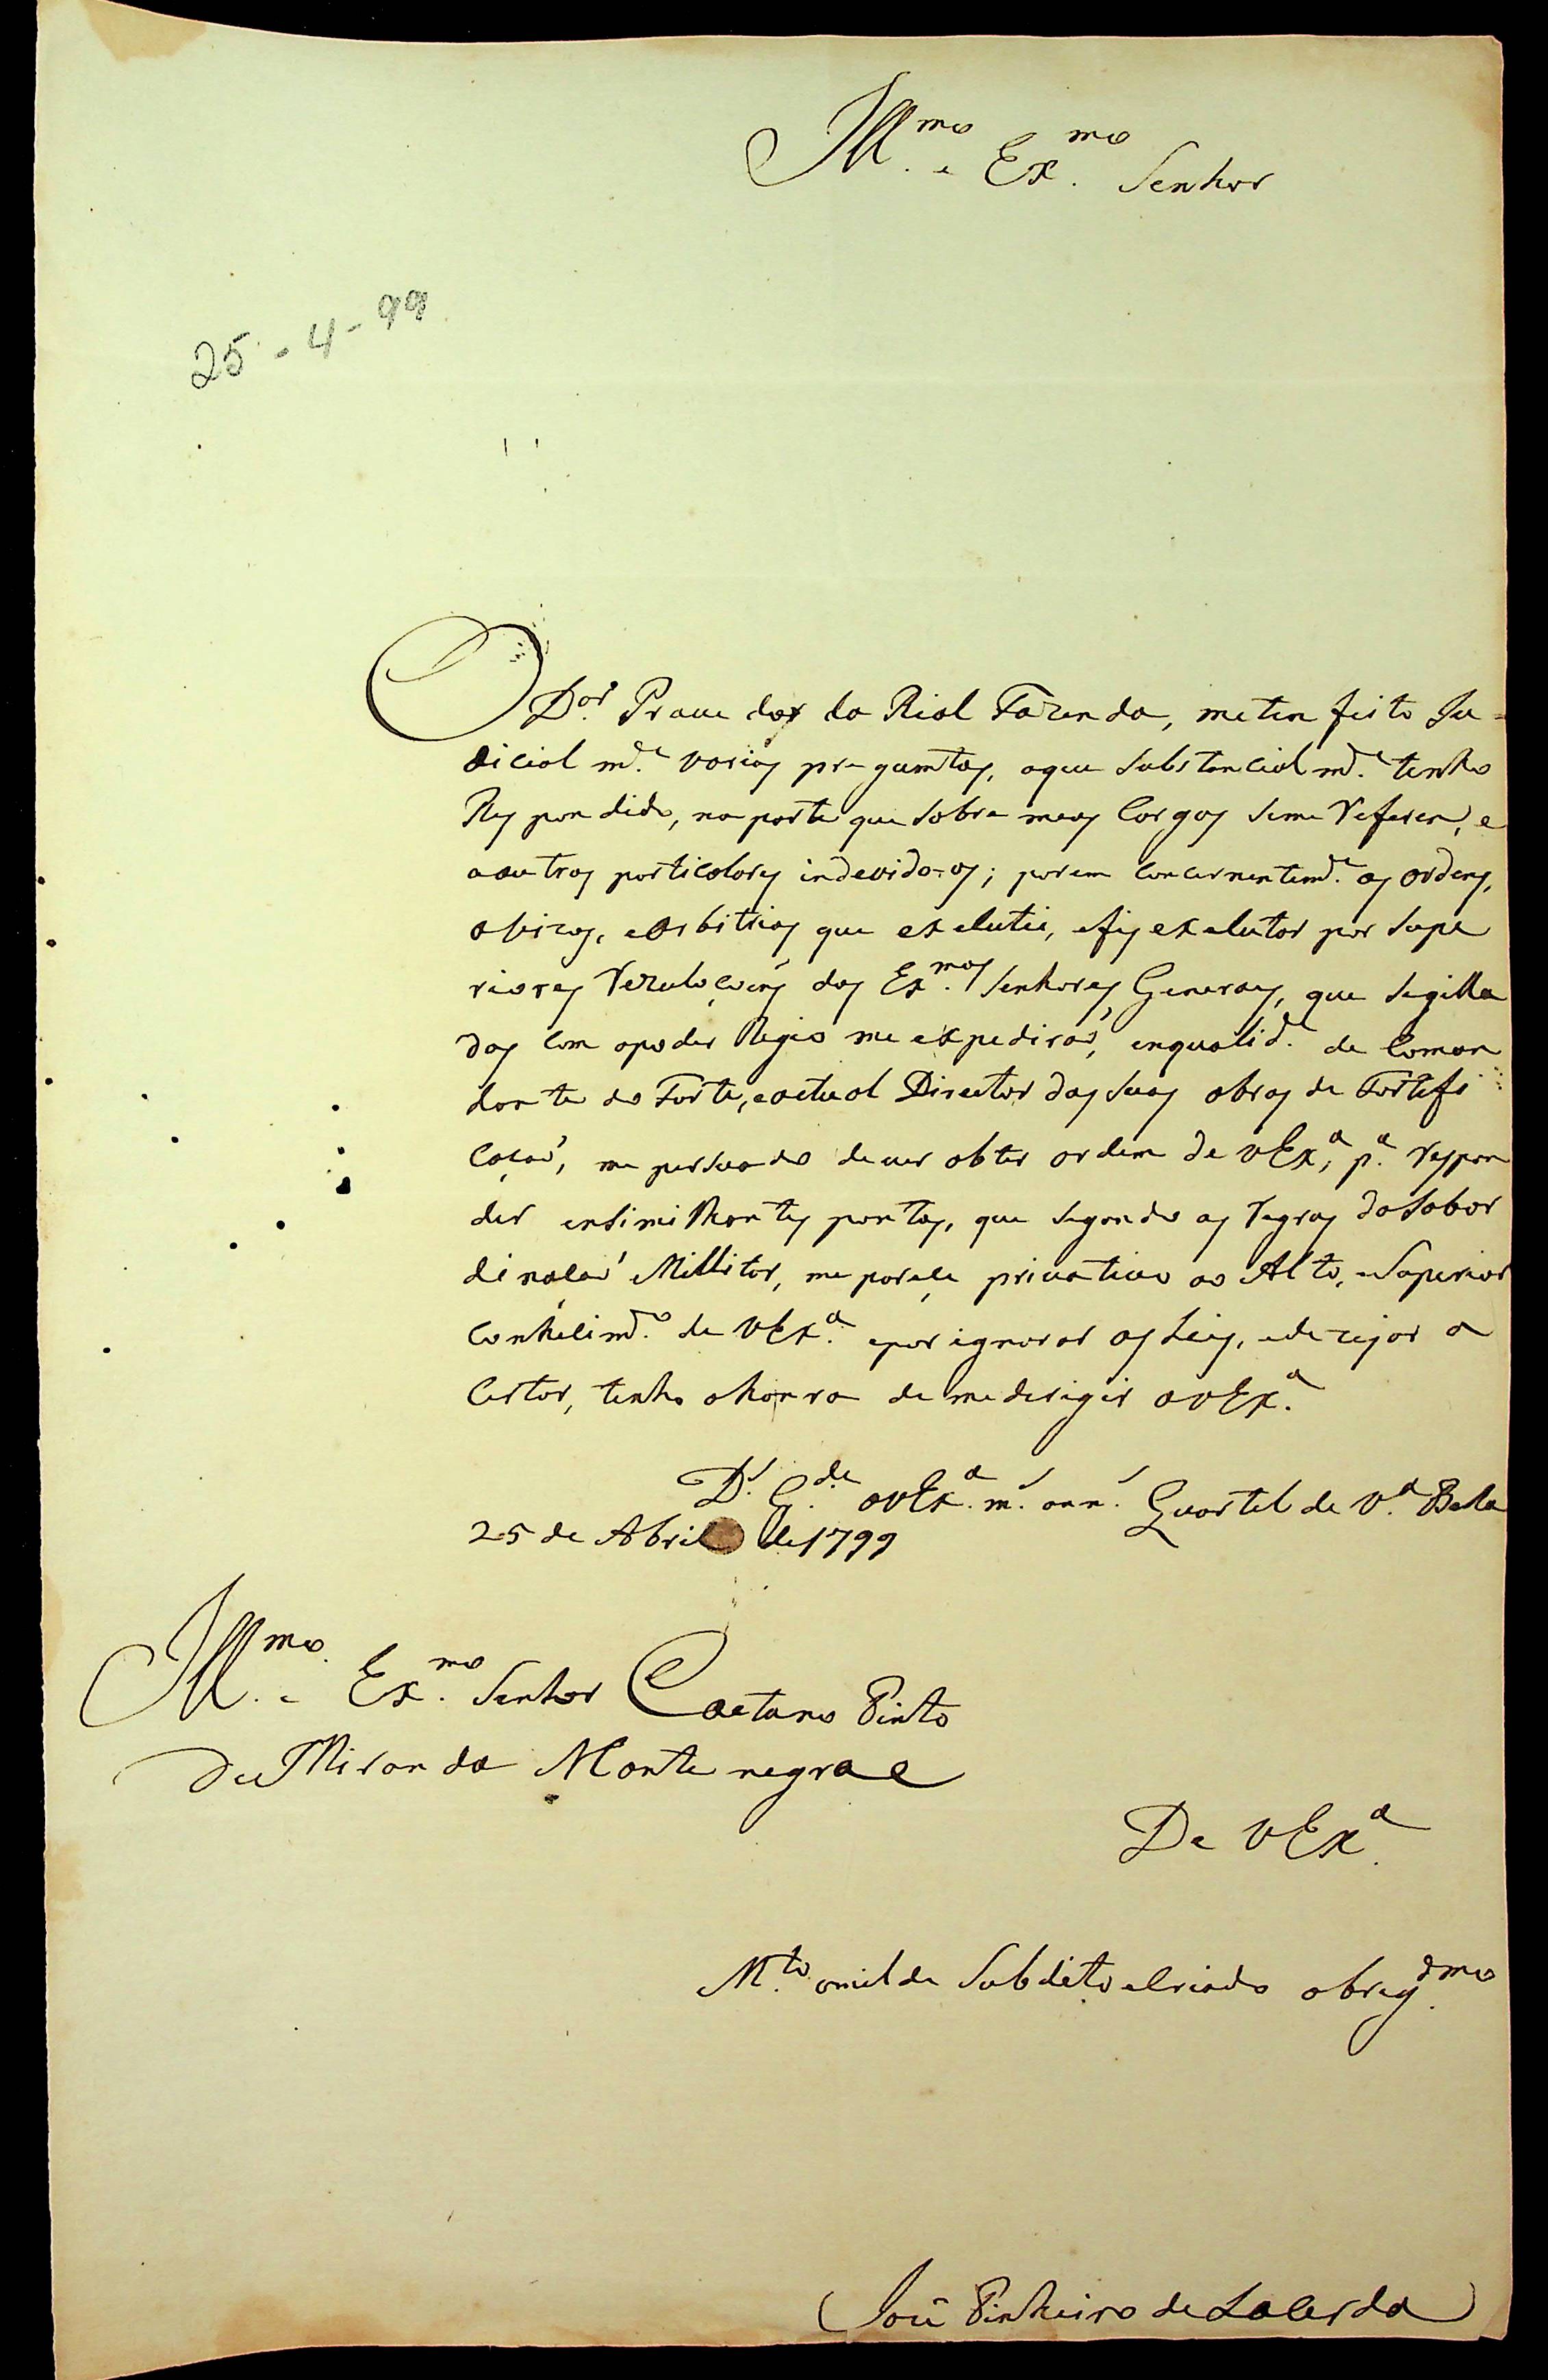 Ill.mo e Ex.mo Senhor
25-4-99
O D.or Prouedor da Rial Fazenda, me tem feito Ju=
dicial m.e varias pregumtas, aque substancial m.e tenho
Respondido, na parte que sobre meos Cargos seme referem, e
aoutras particolares indeviduos; porem concernentem.e as ordens,
avizos, earbitrios que exclutei, efis exclutar por supe
riores rezulocoens dos Ex.mos Senhores Generaes, que sigilla
das com opoder Regio me expediraõ, enqualid.e de Coman
dante do Forte, eactual Director das suas obras de Fortefi
caçaõ, me persuado dever obter ordem de VEx.a, p.a respon
der ensimilhantes pontos, que segondo as regras da sobor
dinaçaõ Millitar, me pareçe privativo ao Alto, e Superior
Conhecim.to de VEx.a epor ignorar as Leis, edezejar a
certar, tenho ahonra de medirigir aVEx.a
D.s G.de aVEx.a m.s ann.s Quartel de V.a Bela
25 de Abril de 1799
Ill.mo e Ex.mo Senhor Caetano Pinto
de Miranda Montenegro
De VEx.a
M.to omilde Subdito eCriado obrig.dmo
Joze Pinheiro de Lacerda